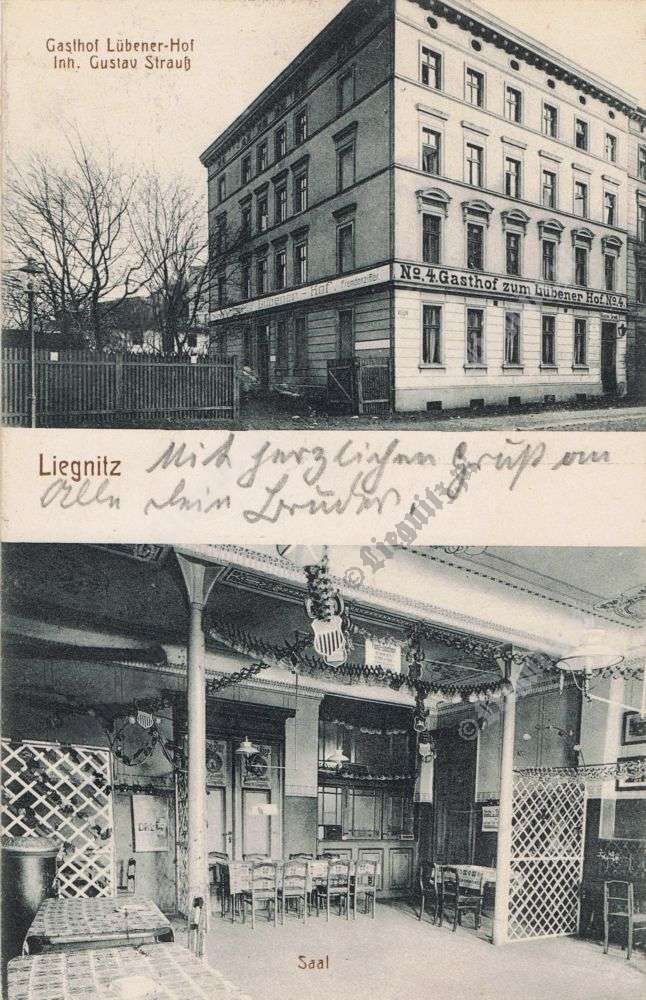 Gasthof Lübener-Hof
Inh. Gustav Strauß
Lübener - Hof
No. 4. Gasthof zum Lübener Hof. No. 4.
Liegnitz
Mit herzlichen Gruß an
Alle dein Bruder.
© Liegnitz
Saal